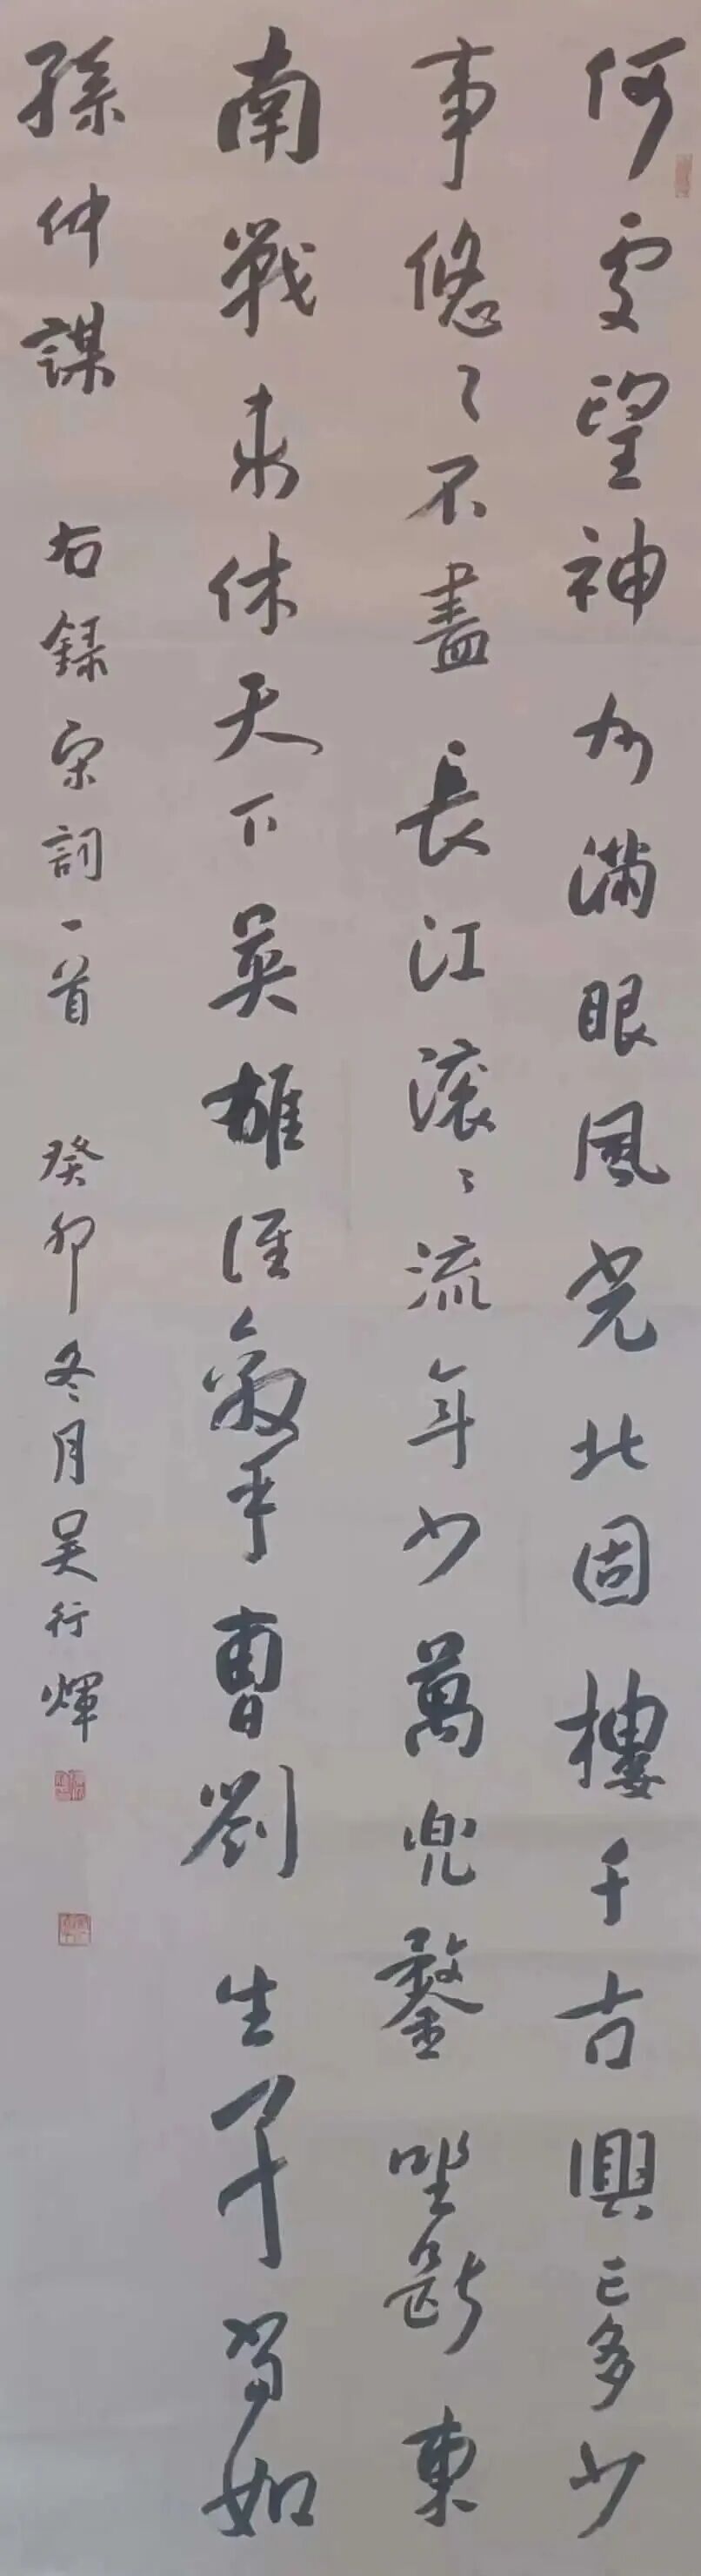 何處望神州滿眼風光北固樓千古興亡多少
事悠〻不盡長江滾〻流年少萬兜鍪坐斷東
南戰未休天下英雄誰敵手曹劉生子當如
孫仲謀 右錄宋詞一首 癸卯冬月吴行煇